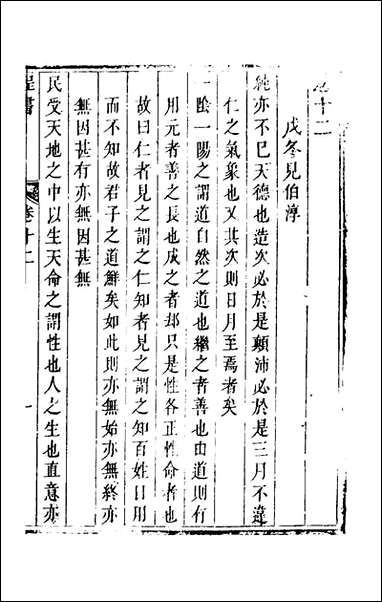 卷十二
戊冬見伯淳
純亦不已天德也造次必於是顛沛必於是三月不違
仁之氣象也又其次則日月至焉者矣
一陰一陽之謂道自然之道也繼之者善也由道則有
用元者善之長也成之者却只是性各正性命者也
故曰仁者見之謂之仁知者見之謂之知百姓日用
而不知故君子之道鮮矣如此則亦無始亦無終亦
無因甚有亦無因甚無
民受天地之中以生天命之謂性也人之生也直意亦
程書
卷十二
一